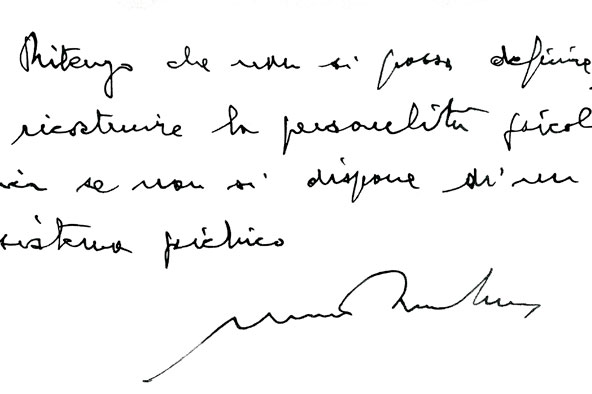 Ritengo che non si possa definire,
ricostruire la personalità psicol
se non si dispone di un
sistema psichico